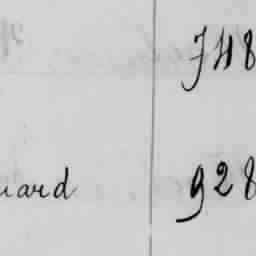 748
uard 928